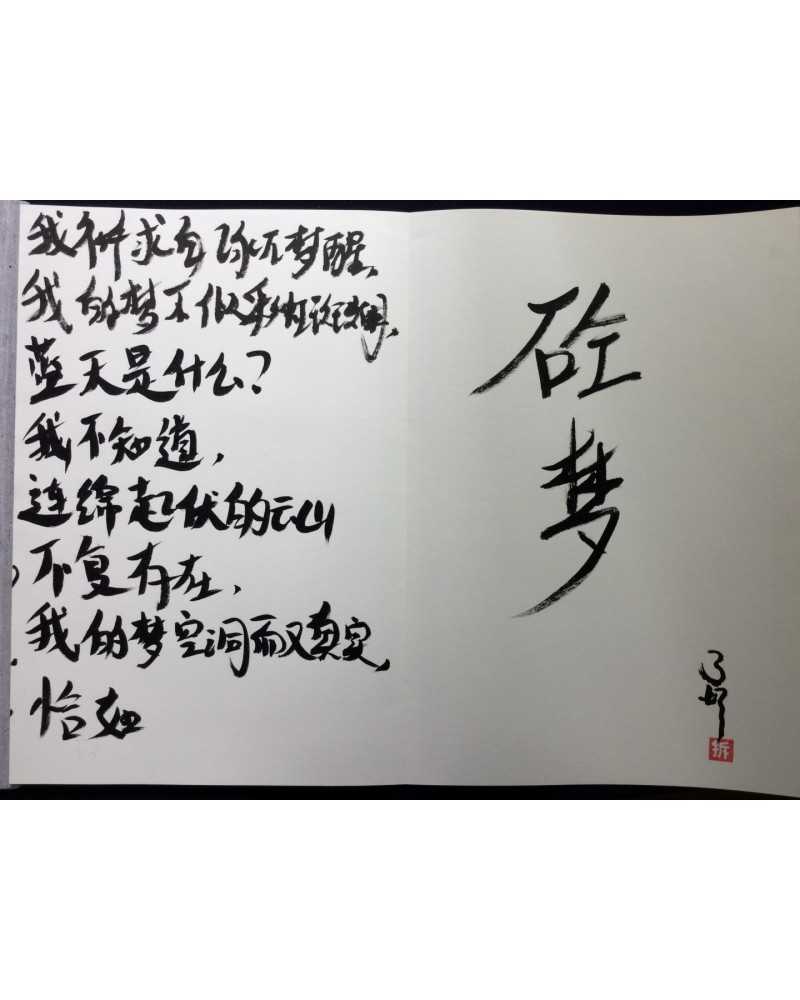 我祈求自梦醒,
我的梦不似彩虹
蓝天是什么?
我不知道,
连绵起伏的云山
不复存在,
我的梦空洞而又真实,
恰如
砼
梦
拆